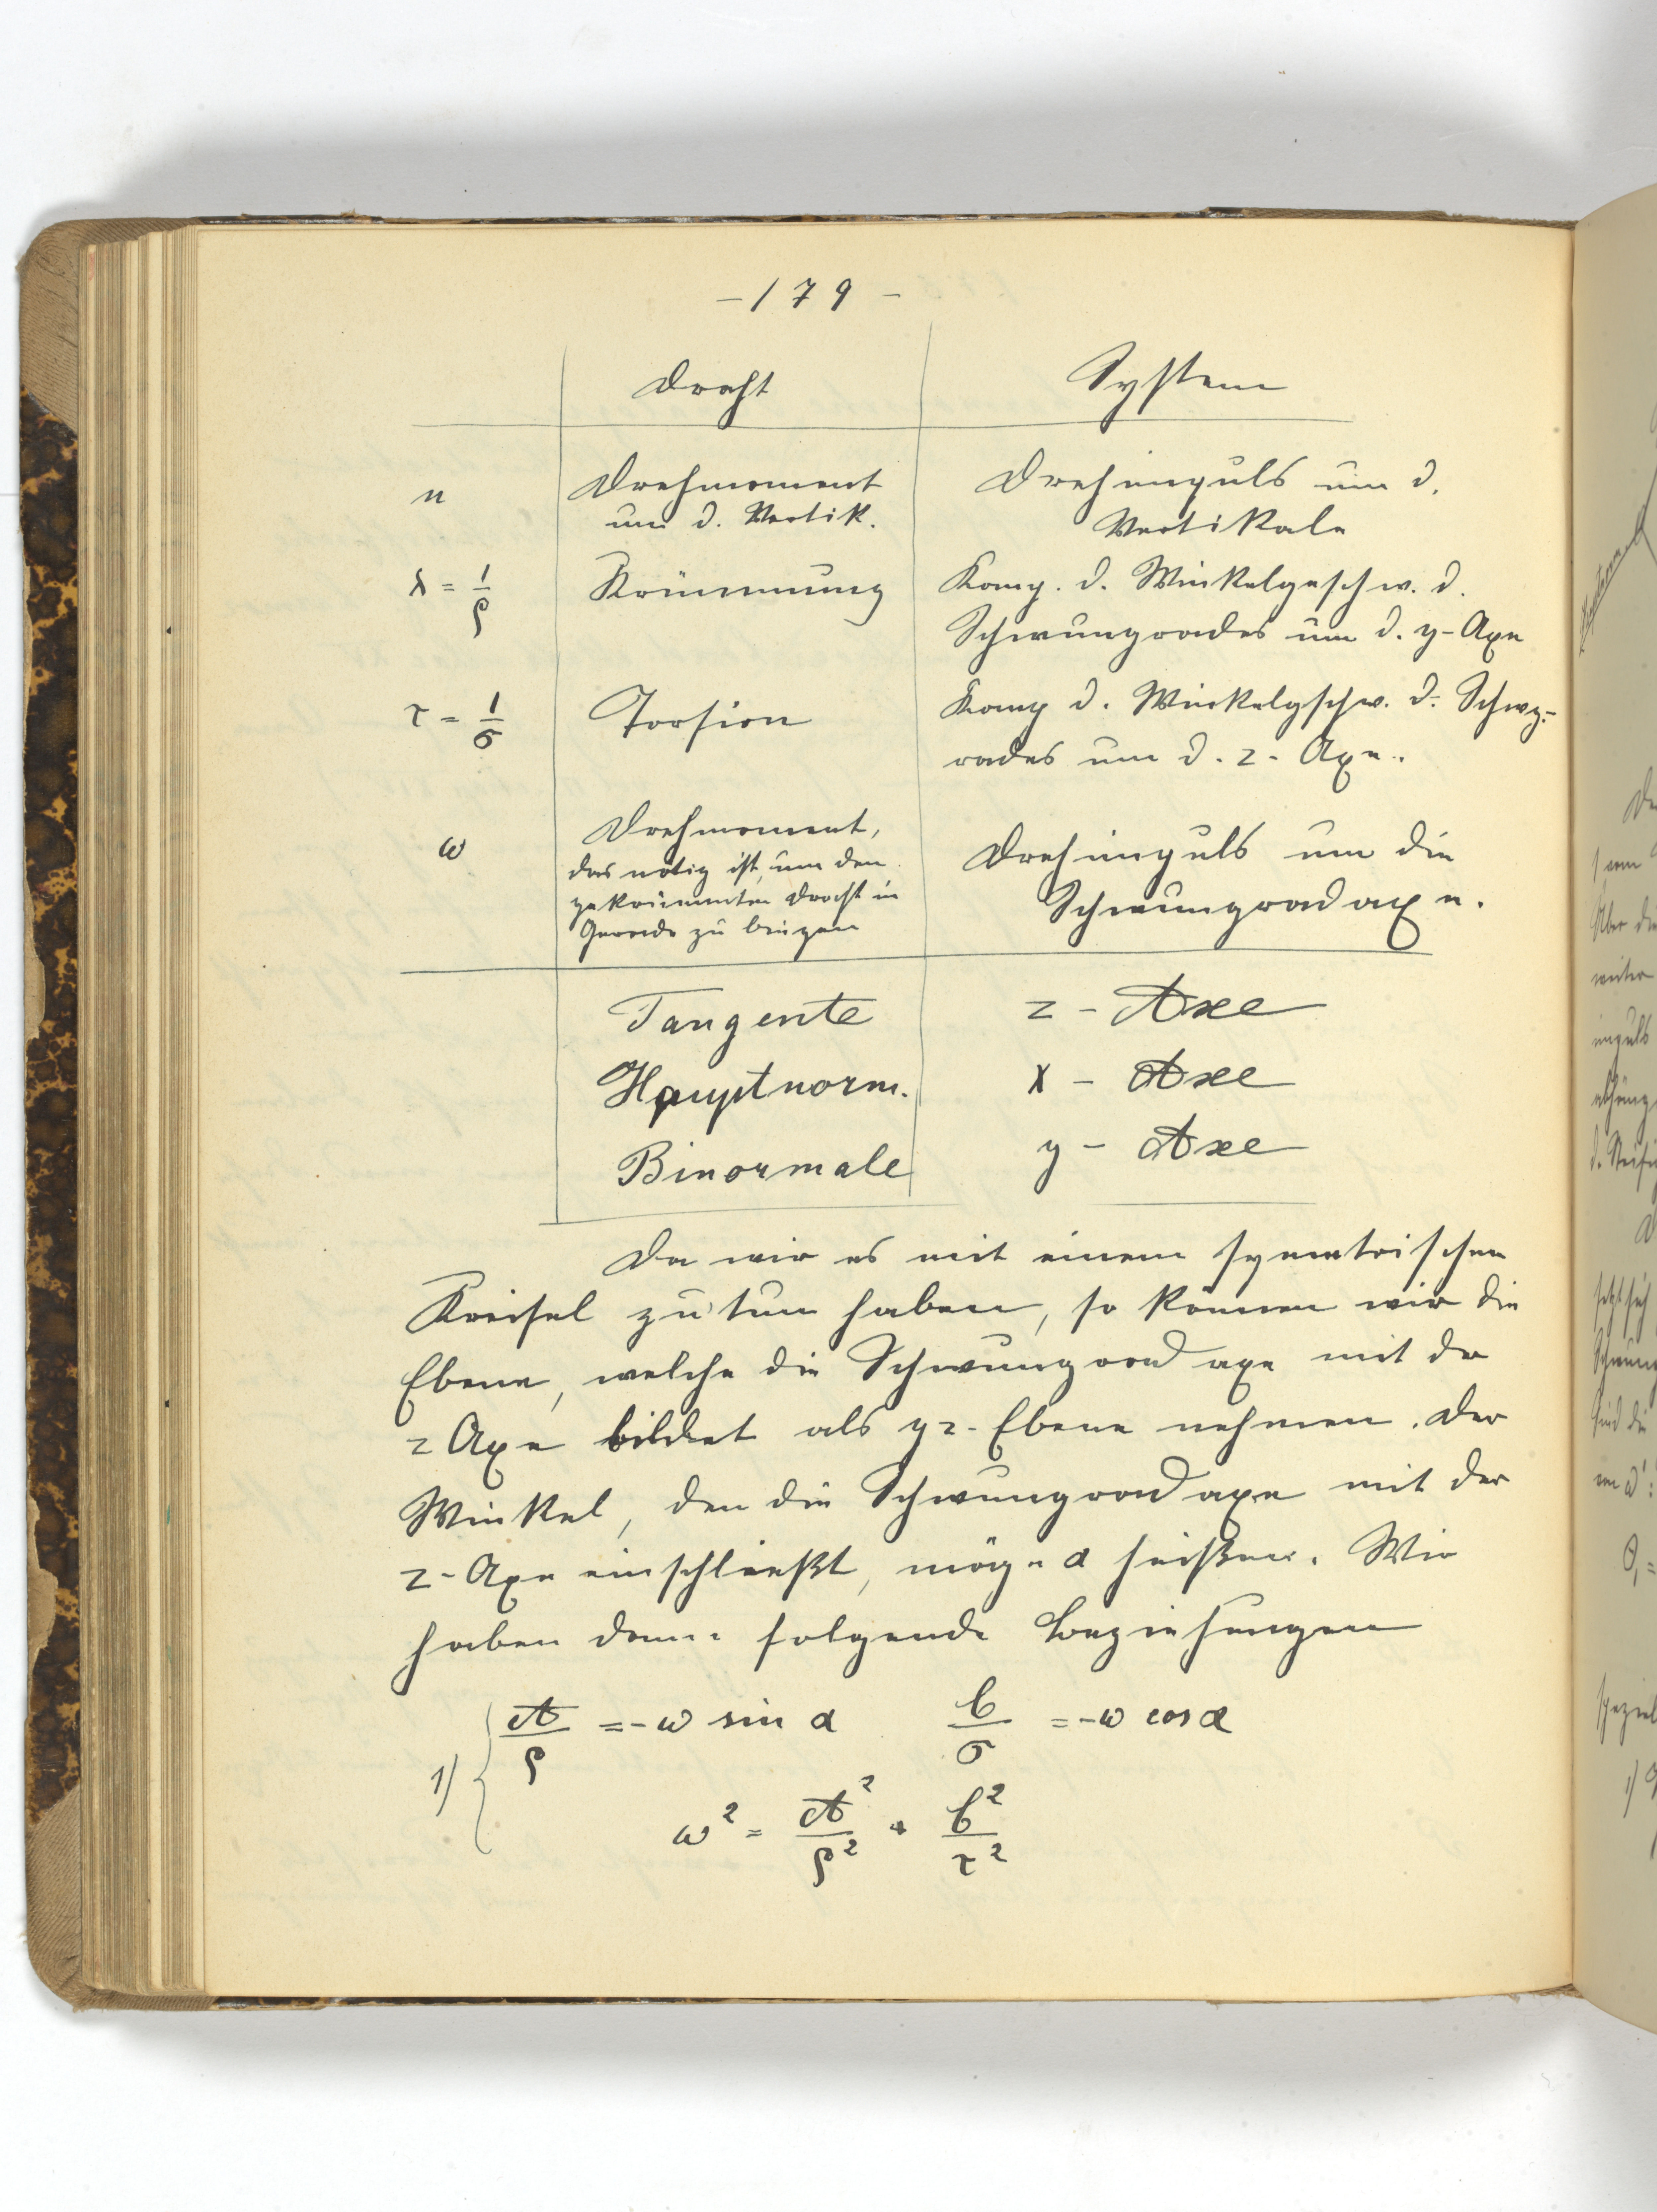 - 179 -
Draht System
n Drehmoment Drehimpuls um d.
um d. Vertik. Vertikale
ϰ = 1/ρ Krümmung Komp. d. Winkelgeschw. d.
Schwungrades um d. y-Axe
τ = 1/σ Torsion Komp d. Winkelgschw. d. Schwg-
rades um d. z-Axe.
ω Drehmoment, Drehimpuls um die
das nötig ist, um den Schwungradaxe.
gekrümmten Draht in
Gerade zu bringen
Tangente z - Axe
Hauptnorm. x - Axe
Binormale y - Axe
Da wir es mit einem symetrischen
Kreisel zu tun haben, so können wir die
Ebene, welche die Schwungradaxe mit der
z Axe bildet als yz-Ebene nehmen. Der
Winkel, den die Schwungradaxe mit der
z-Axe einschließt, möge α heißen. Wir
haben dann folgende Beziehungen
1) { A/ρ = -ω sin α b/σ = -ω cos α
ω² = A²/ρ² + b²/τ²